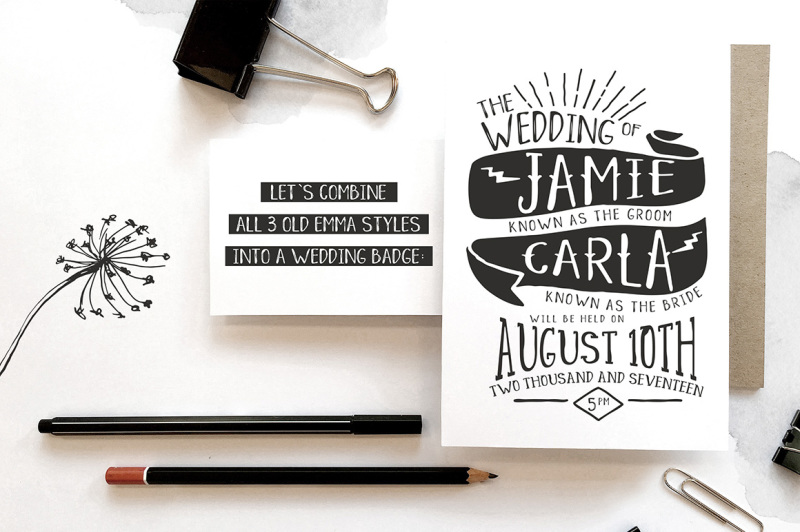 LET`S COMBINE
ALL 3 OLD EMMA STYLES
INTO A WEDDING BADGE:
THE
WEDDING OF
JAMIE
KNOWN AS THE GROOM
CARLA
KNOWN AS THE BRIDE
WILL BE HELD ON
AUGUST 10TH
TWO THOUSAND AND SEVENTEEN
5 PM